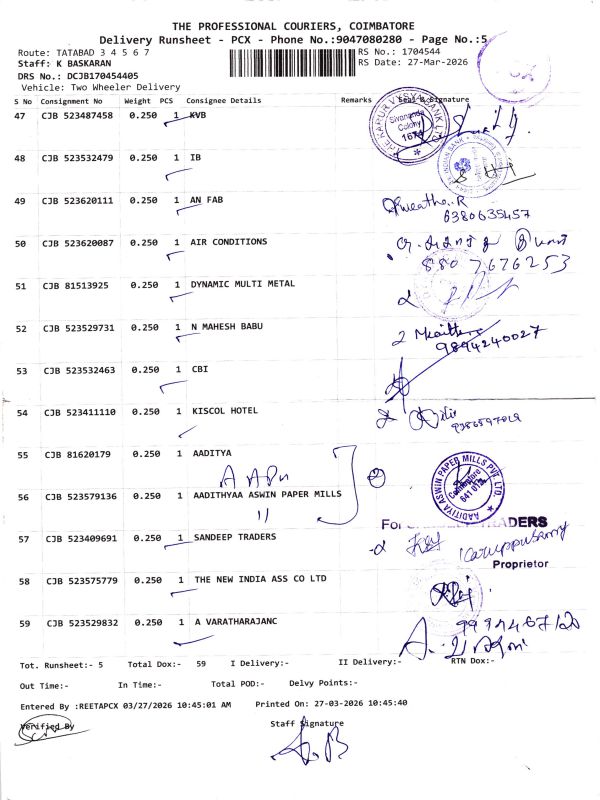 THE PROFESSIONAL COURIERS, COIMBATORE
Delivery Runsheet - PCX - Phone No.:9047080280 - Page No.:5
Route: TATABAD 3 4 5 6 7
RS No.: 1704544
Staff: K BASKARAN
RS Date: 27-Mar-2026
DRS No.: DCJB170454405
Vehicle: Two Wheeler Delivery
S No Consignment No Weight PCS Consignee Details Remarks Seal & Signature
47 CJB 523487458 0.250 1 KVB
Sivananda Colony 1674
48 CJB 523532479 0.250 1 IB
49 CJB 523620111 0.250 1 AN FAB
6380635457
50 CJB 523620087 0.250 1 AIR CONDITIONS
8807676253
51 CJB 81513925 0.250 1 DYNAMIC MULTI METAL
52 CJB 523529731 0.250 1 N MAHESH BABU
9894240027
53 CJB 523532463 0.250 1 CBI
54 CJB 523411110 0.250 1 KISCOL HOTEL
55 CJB 81620179 0.250 1 AADITYA
AADITIYA ASWIN PAPER MILLS PVT. LTD.
Coimbatore 641 012
56 CJB 523579136 0.250 1 AADITHYAA ASWIN PAPER MILLS
For TRADERS
57 CJB 523409691 0.250 1 SANDEEP TRADERS
Karuppusamy
Proprietor
58 CJB 523575779 0.250 1 THE NEW INDIA ASS CO LTD
59 CJB 523529832 0.250 1 A VARATHARAJANC
Tot. Runsheet:- 5 Total Dox:- 59 I Delivery:- II Delivery:- RTN Dox:-
Out Time:- In Time:- Total POD:- Delvy Points:-
Entered By :REETAPCX 03/27/2026 10:45:01 AM Printed On: 27-03-2026 10:45:40
Verified By Staff Signature